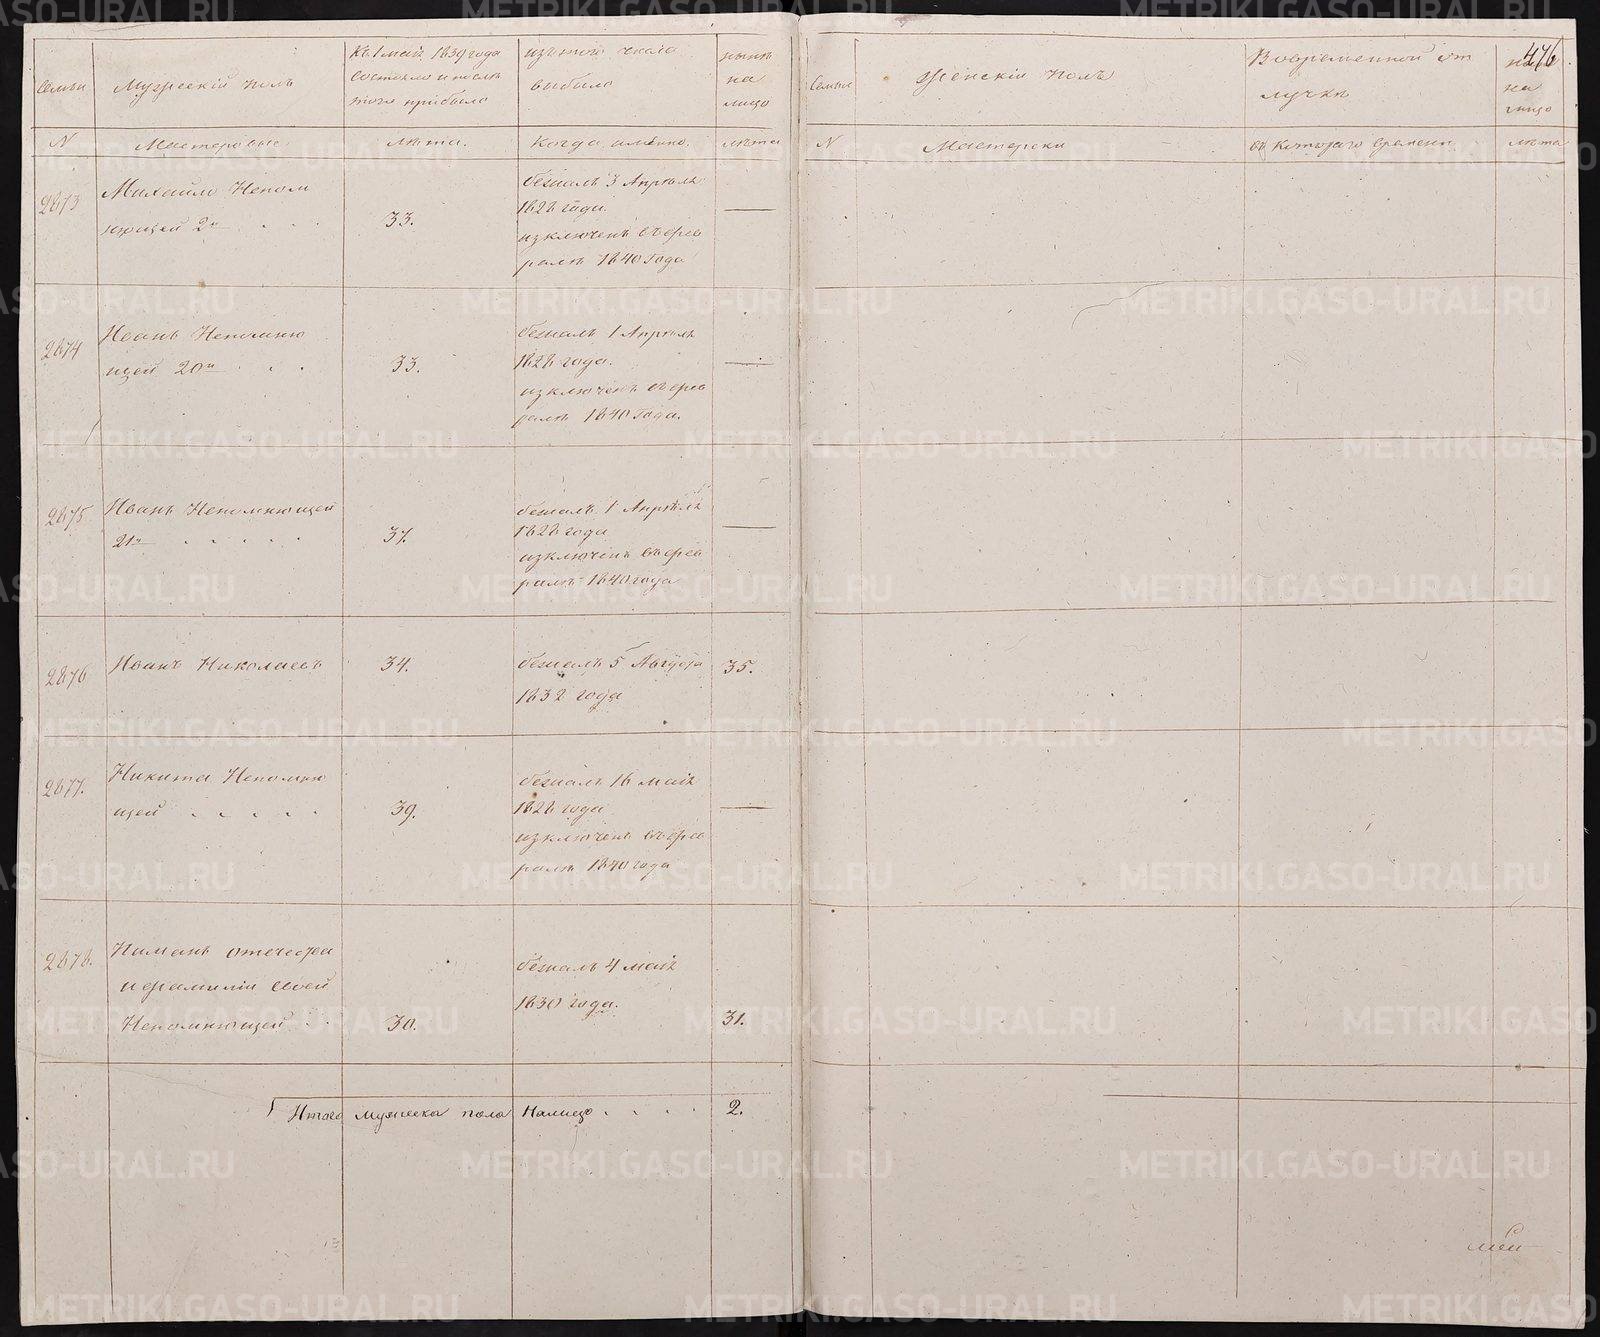 Семьи
Мужескій полъ
Къ 1 маія 1839 года
состояло и послѣ
того прибыло
изъ того числа
выбыло
нынѣ
на
лицо
№
Мастеровые
лѣта.
Когда имянно.
лѣта
2873
Михайло Непом
нющей 2й . . .
33.
бежалъ 3 Апрѣля
1828 года.
изключенъ въ фев
ралѣ 1840 года
—
2874
Иванъ Непомню
щей 20й . . .
33.
бежалъ 1 Апрѣля
1828 года.
изключенъ въ фев
ралѣ 1840 года.
—
2875
Иванъ Непомнющей
21й . . . . .
37.
бежалъ 1 Апрѣля
1828 года
изключенъ въ фев
ралѣ 1840 года
—
2876
Иванъ Николаевъ
34.
бежалъ 5 Августа
1832 года
35.
2877.
Никита Непомню
щей . . . . .
39.
бежалъ 16 маія
1828 года
изключенъ въ фев
ралѣ 1840 года
—
2878.
отечества
и фамиліи своей
Непомнющей . .
30.
бежалъ 4 маія
1830 года.
31.
Итого мужеска пола налицо . . . . 2.
476
Семьи
Женскій полъ
Вовременной от
лучкѣ
на
лицо
№
Мастерски
съ котораго времени
лѣта
METRIKI.GASO-URAL.RU